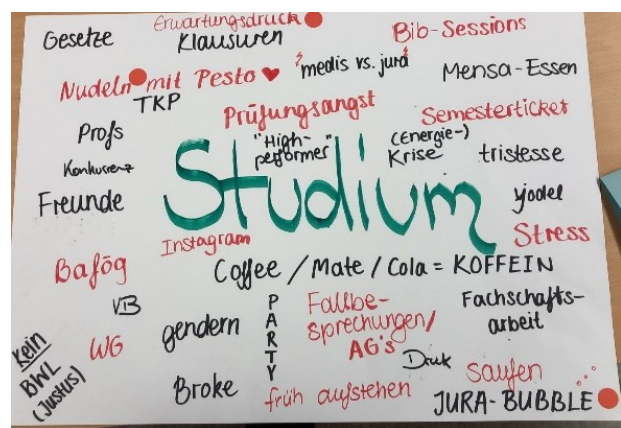 Erwartungsdruck
Gesetze
Klausuren
Bib-Sessions
Nudeln mit Pesto
TKP
"medis vs. jura"
Mensa-Essen
Profs
Prüfungsangst
Semesterticket
Konkurrenz
"High-
performer"
(Energie-)
Krise
tristesse
Freunde
Studium
yodel
Instagram
Stress
Bafög
Coffee / Mate / Cola = KOFFEIN
VB
WG
gendern
PARTY
Fallbe-
sprechungen/
AG's
Fachschafts-
arbeit
kein
BWL
(Justus)
Broke
früh aufstehen
Druk
saufen
JURA-BUBBLE